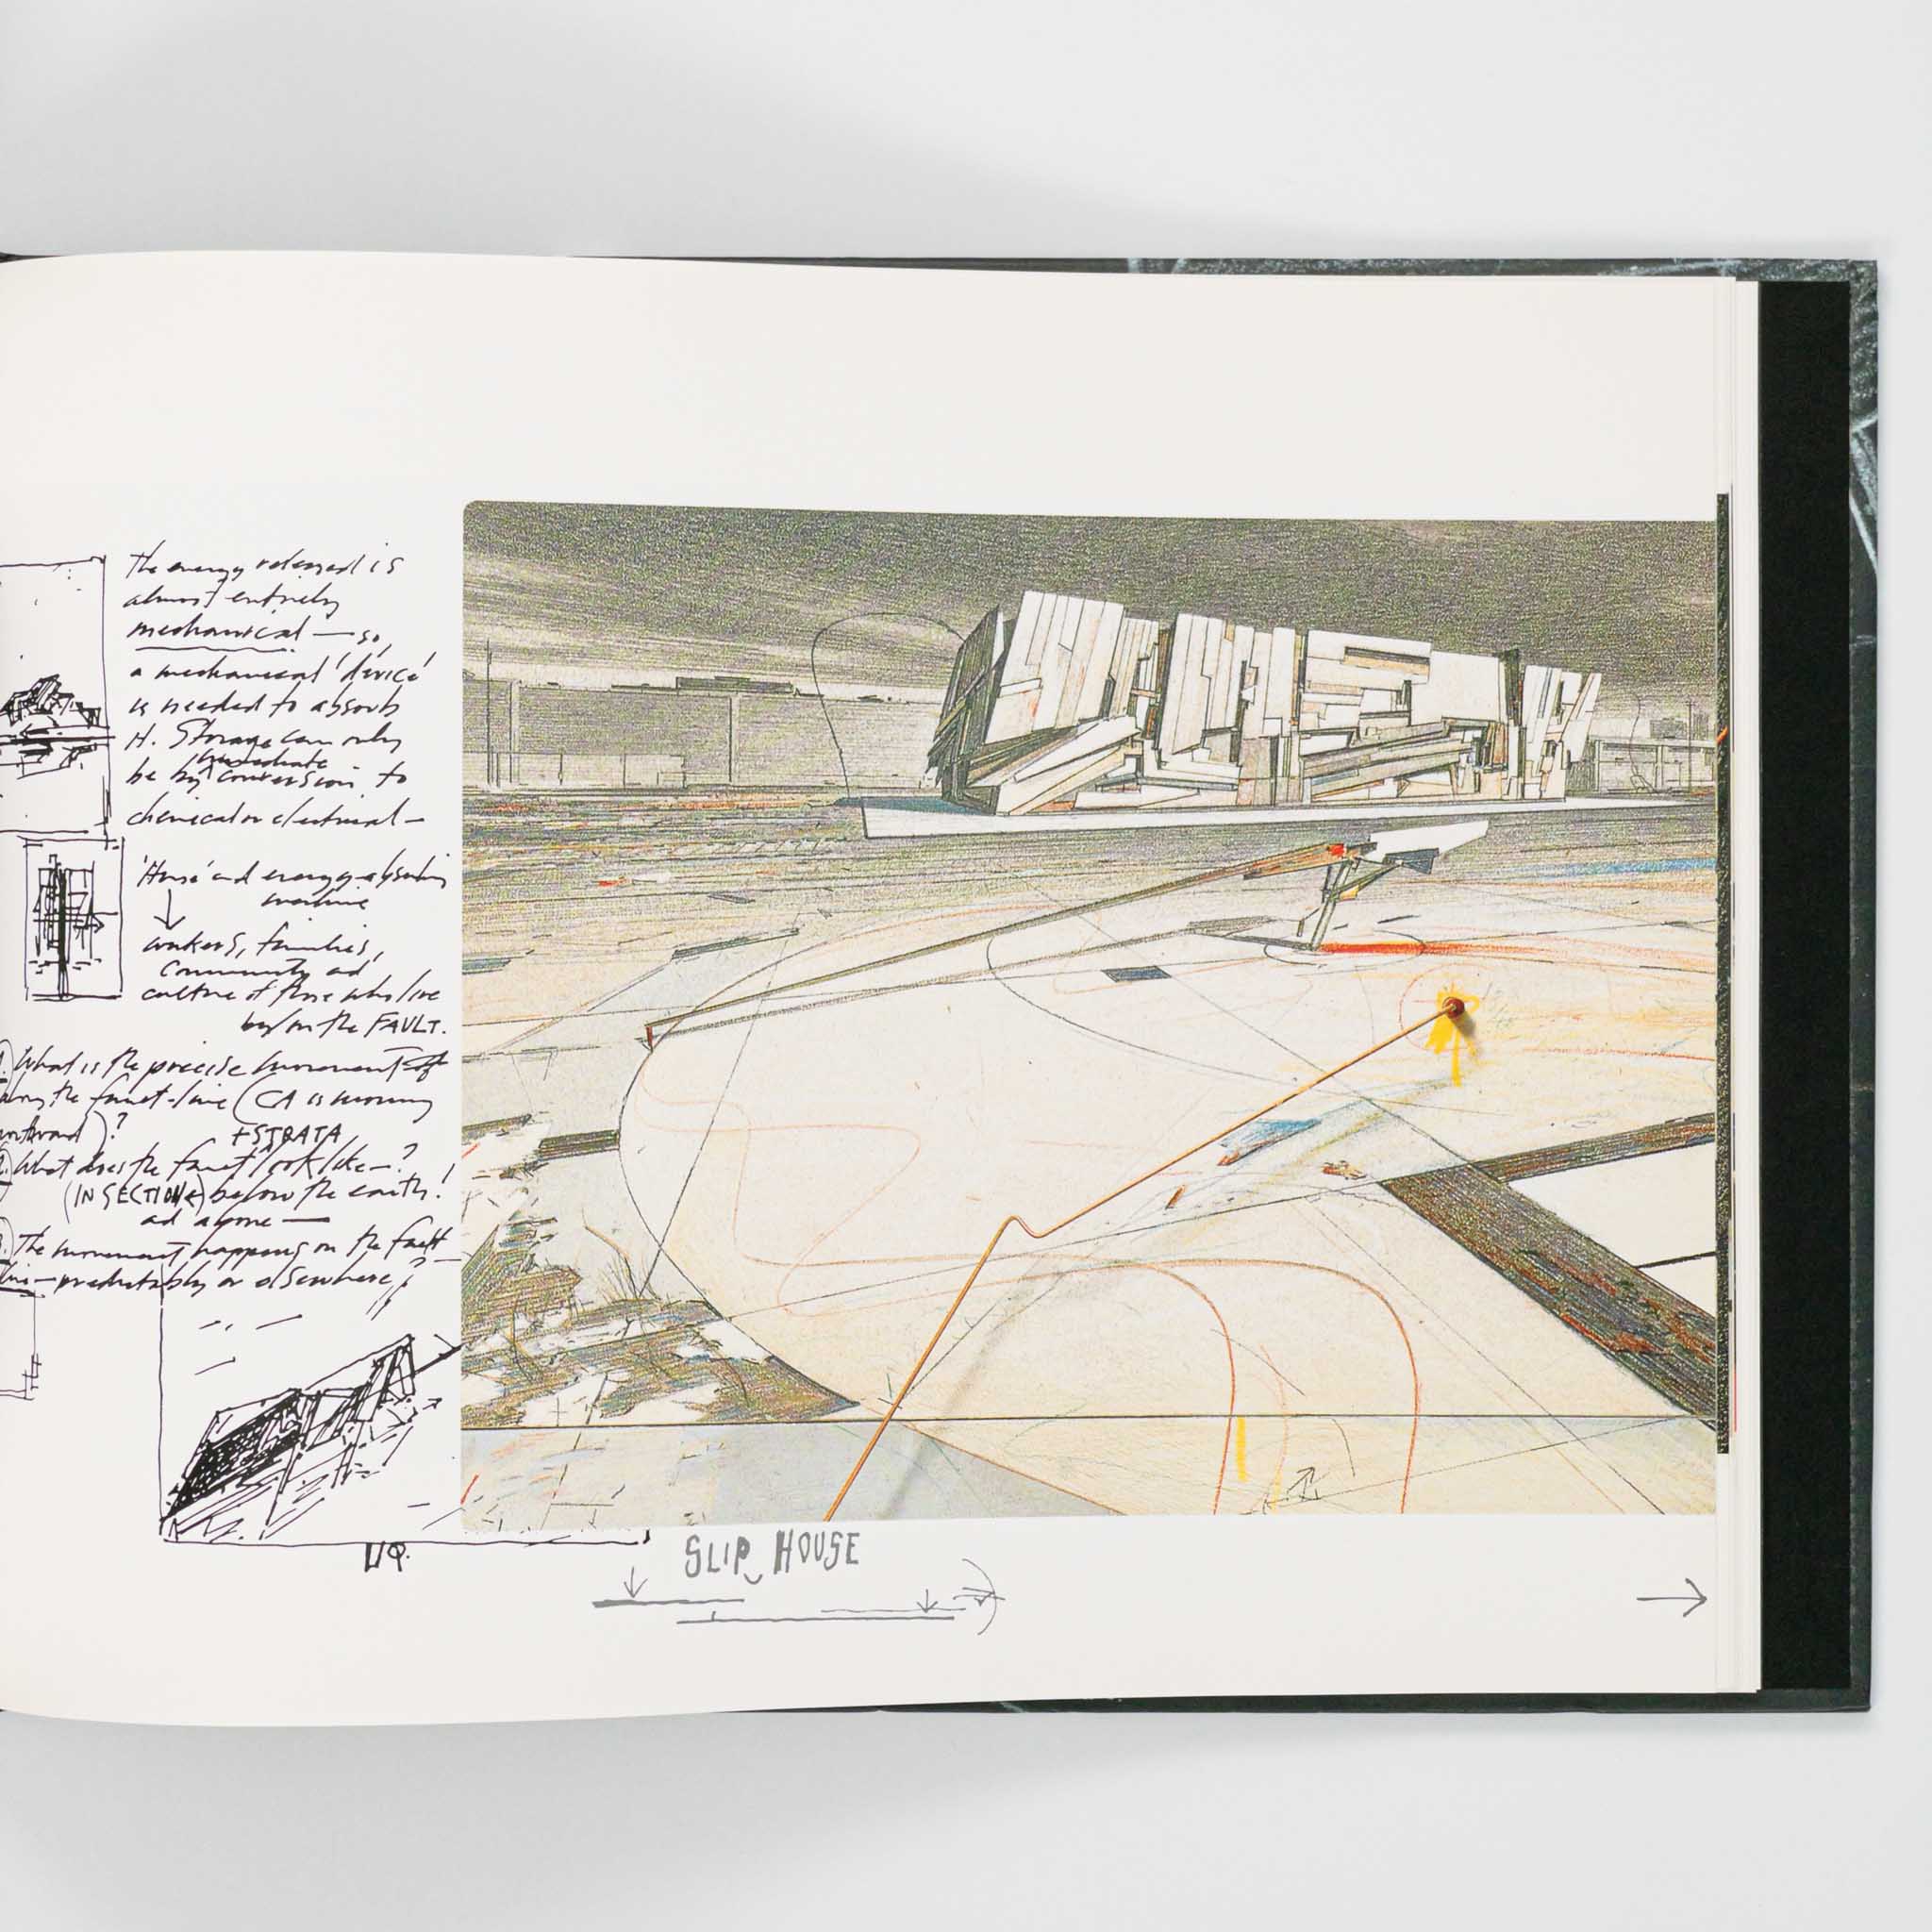 The energy released is
almost entirely
mechanical — so,
a mechanical 'device'
is needed to absorb
it. Storage can only
immediate
be by conversion to
chemical or electrical —
'House' and energy-absorbing
machine
workers, families,
community and
culture of those who live
by/on the FAULT.
1. What is the precise movement of
along the fault-line (CA is moving
northward)?
+STRATA
2. What does the fault look like —?
(IN SECTION) below the earth!
and above —
3. The movement happens on the fault
line — predictably or elsewhere?
SLIP HOUSE